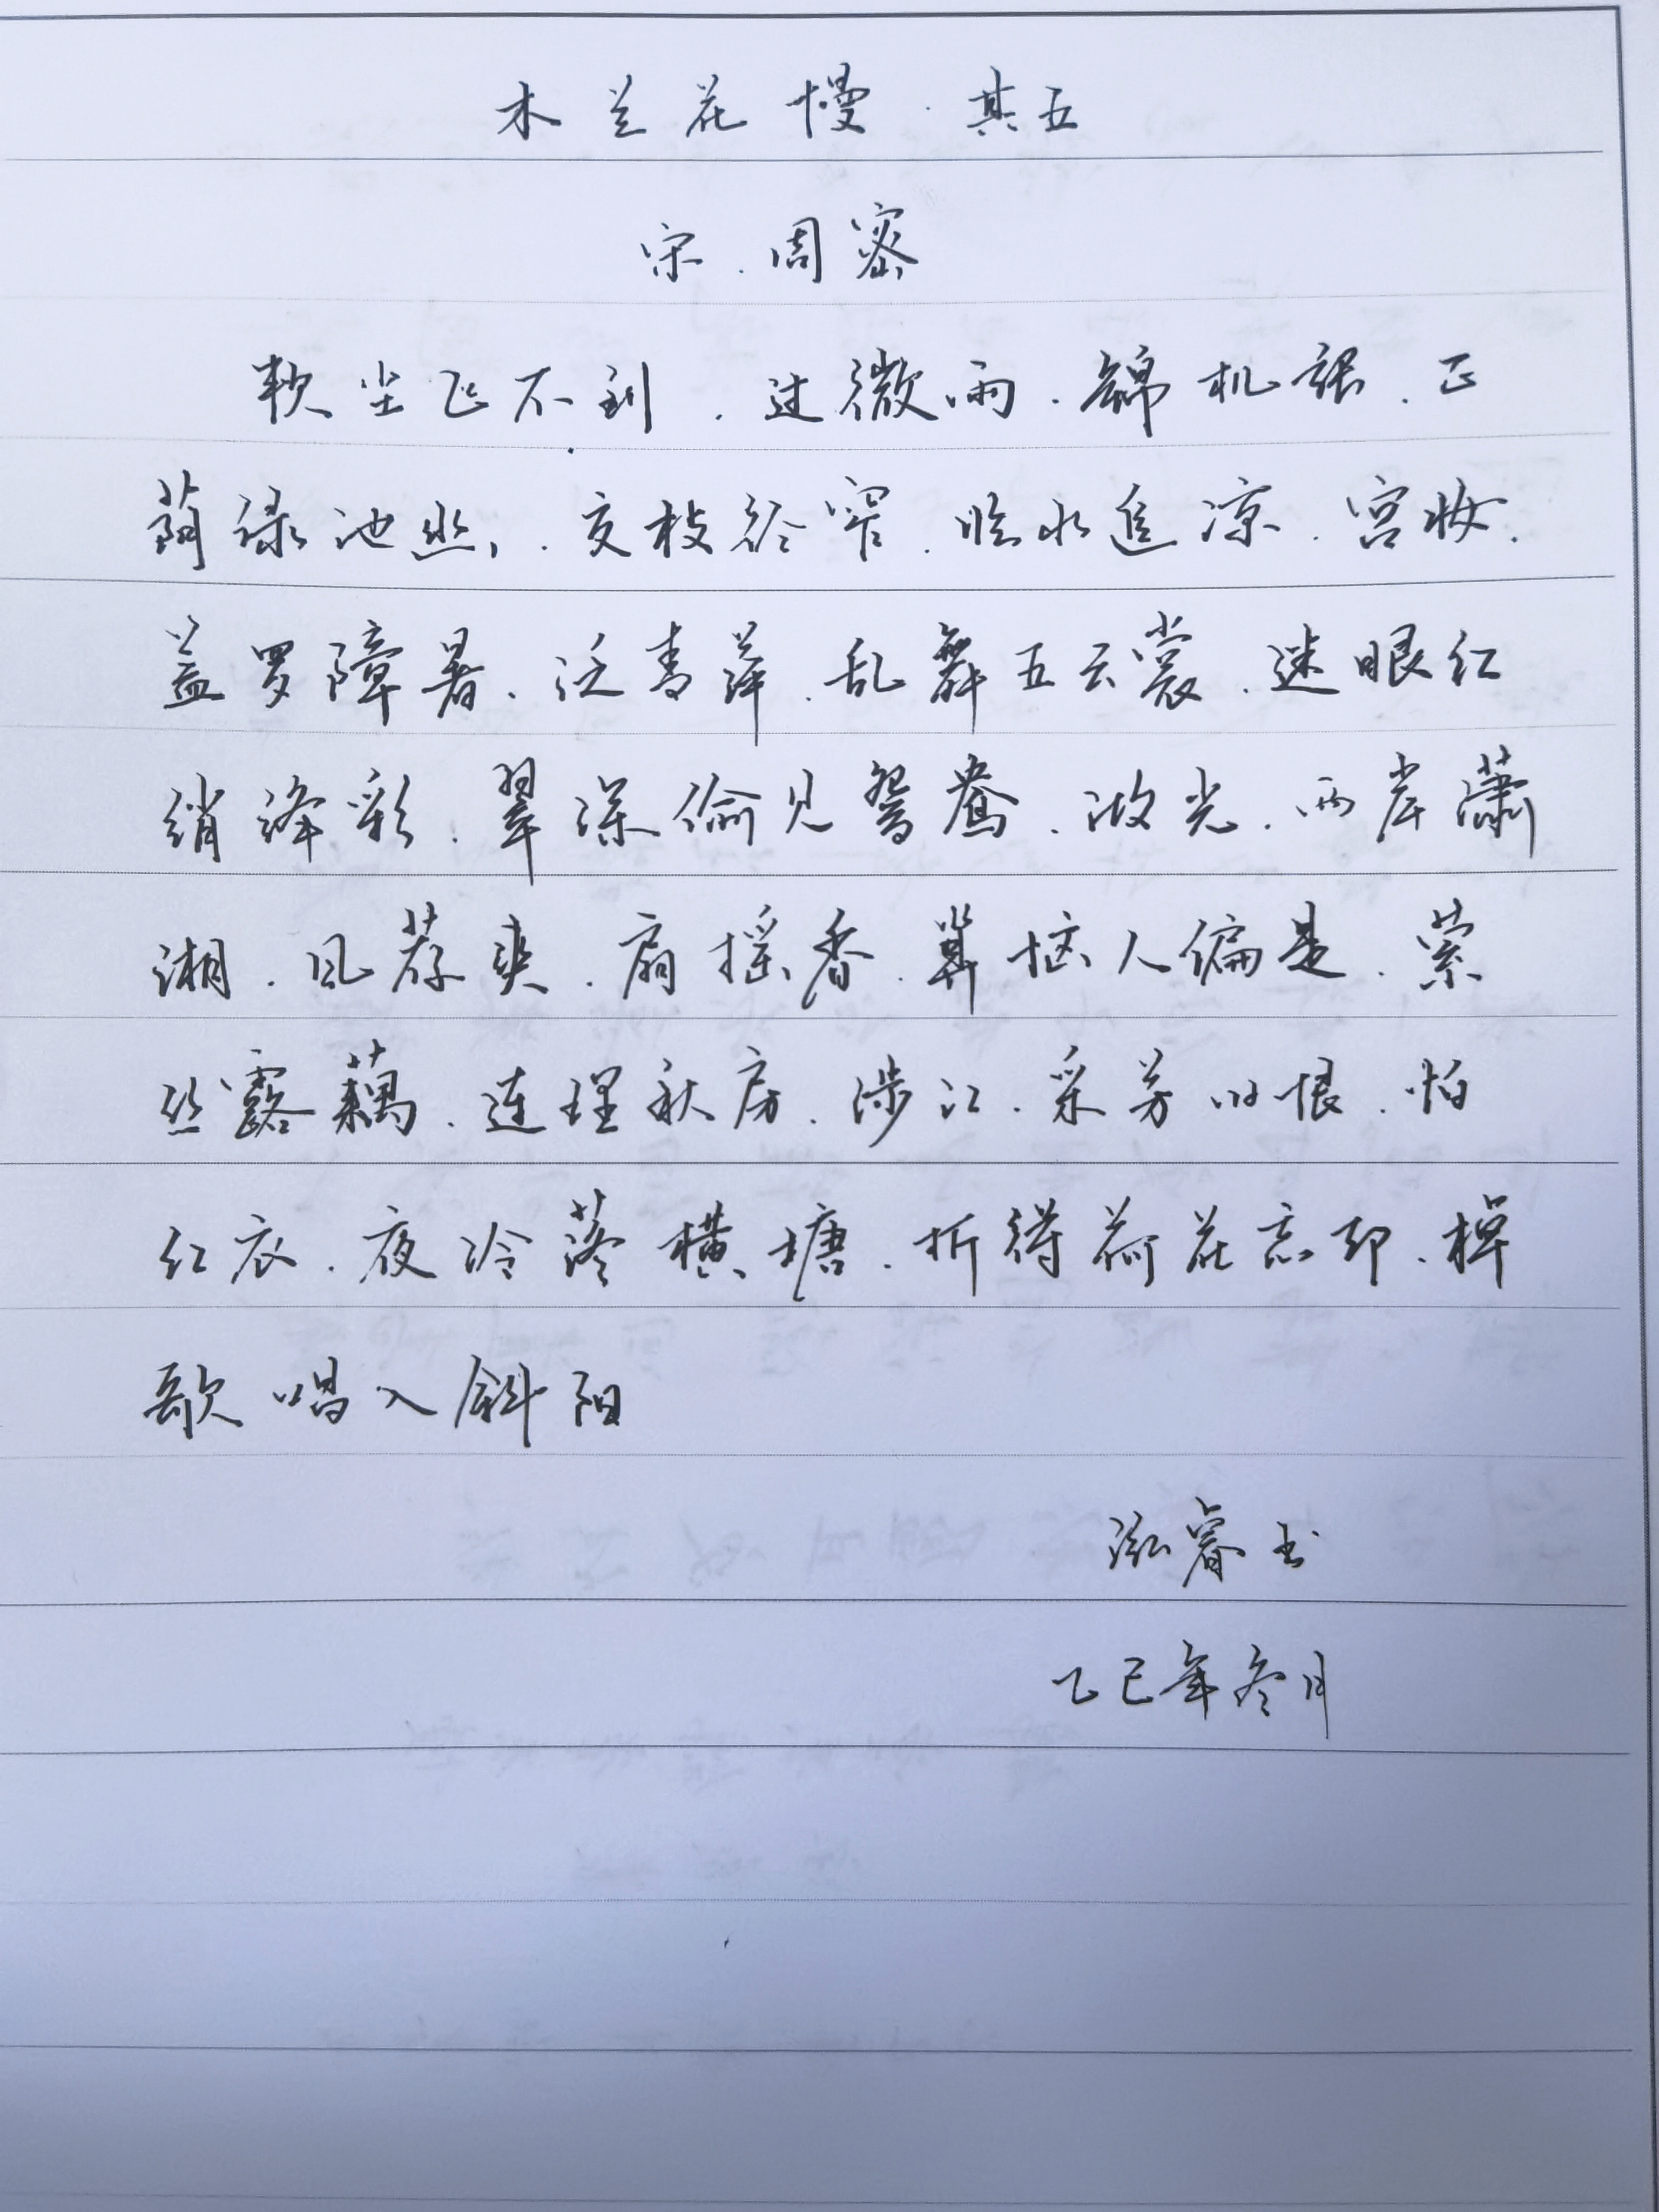 木兰花慢·其五
宋·周密
软尘飞不到.过微雨.锦机张.正
荫绿池幽,.交枝径窄.临水追凉.宫妆.
盖罗障暑.泛青萍.乱舞五云裳.迷眼红
绡绛彩.翠深偷见鸳鸯.湖光.两岸潇
湘.风荐爽.扇摇香.算恼人偏是.萦
丝露藕.连理秋房.涉江.采芳旧恨.怕
红衣.夜冷落横塘.折得荷花忘却.棹
歌唱入斜阳
泓睿书
乙巳年冬月